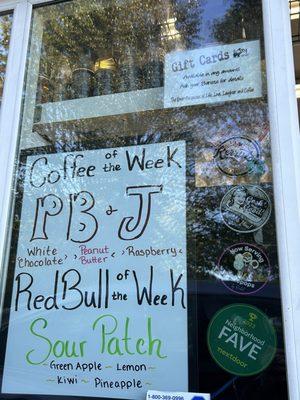 Gift Cards
Available in any amount
Ask your Barista for details
Coffee of the Week
PB + J
White Chocolate, Peanut Butter, Raspberry
Red Bull of the Week
Sour Patch
Green Apple ~ Lemon
~ Kiwi ~ Pineapple ~
Now Serving
Lotus
Neighborhood
FAVE
nextdoor
1-800-369-0996